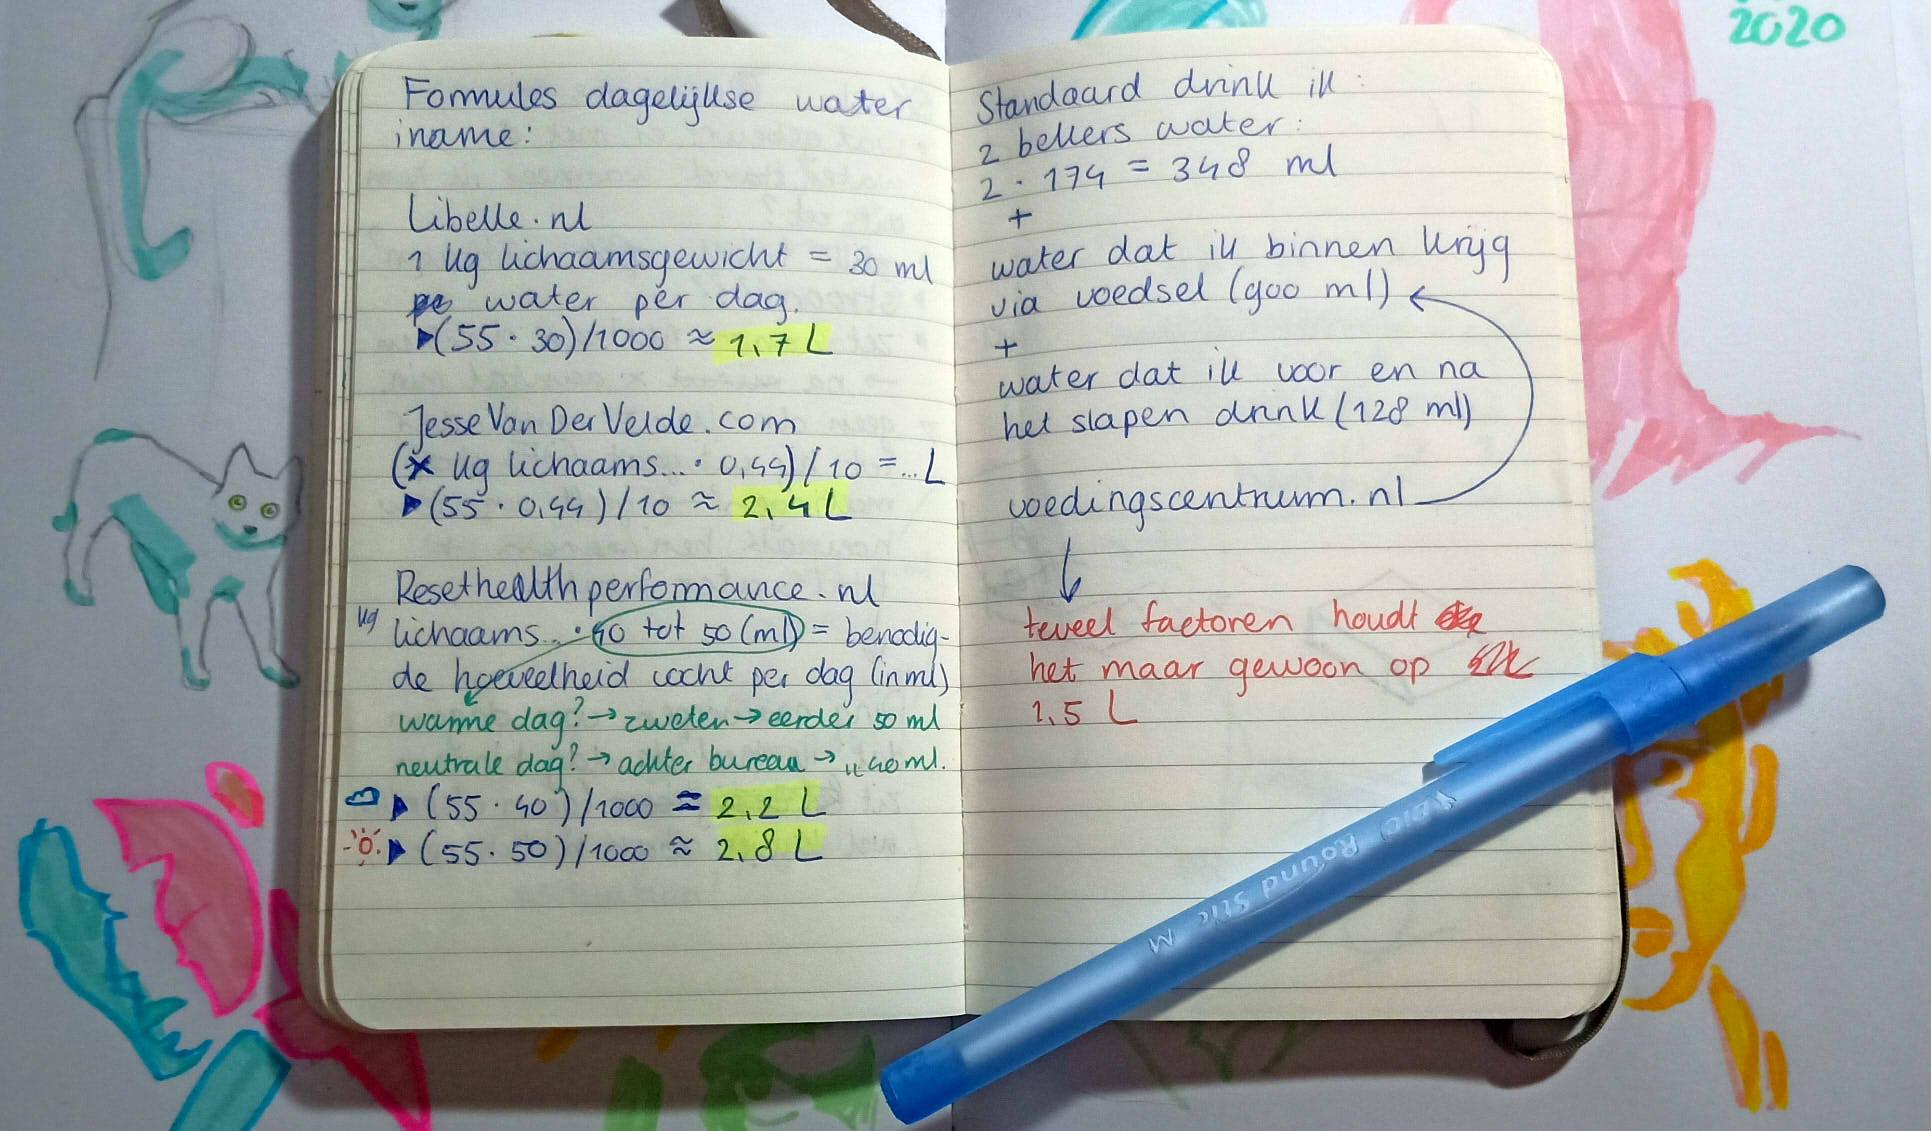 2020
Formules dagelijkse water
iname:
Libelle.nl
1 kg lichaamsgewicht = 30 ml
water per dag.
▶(55 · 30)/1000 ≈ 1,7 L
JesseVanDerVelde.com
(x kg lichaams... · 0,44)/10 =...L
▶(55 · 0,44)/10 ≈ 2,4 L
Resethealthperformance.nl
kg lichaams... · 40 tot 50 (ml) = benodig-
de hoeveelheid vocht per dag (in ml)
warme dag? → zweten → eerder 50 ml
neutrale dag? → achter bureau → " 40 ml.
▶ (55 · 40)/1000 ≈ 2,2 L
▶ (55 · 50)/1000 ≈ 2,8 L
Standaard drink ik:
2 bekers water:
2 · 174 = 348 ml
+
water dat ik binnen krijg
via voedsel (900 ml)
+
water dat ik voor en na
het slapen drink (128 ml)
voedingscentrum.nl
↓
teveel factoren houdt
het maar gewoon op
1,5 L
BIC Round Stic M